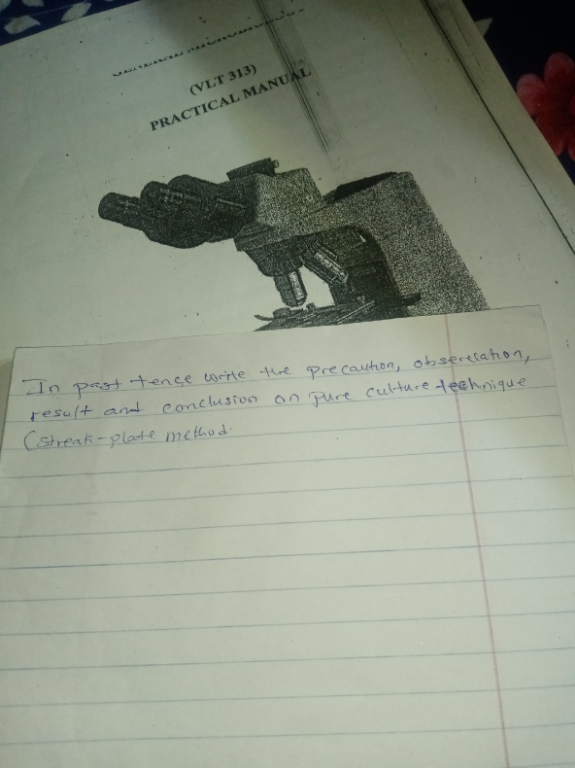 (VLT 313)
PRACTICAL MANUAL
In past tence write the precaution, obserelation,
result and conclusion on pure culture technique
(streak-plate method.